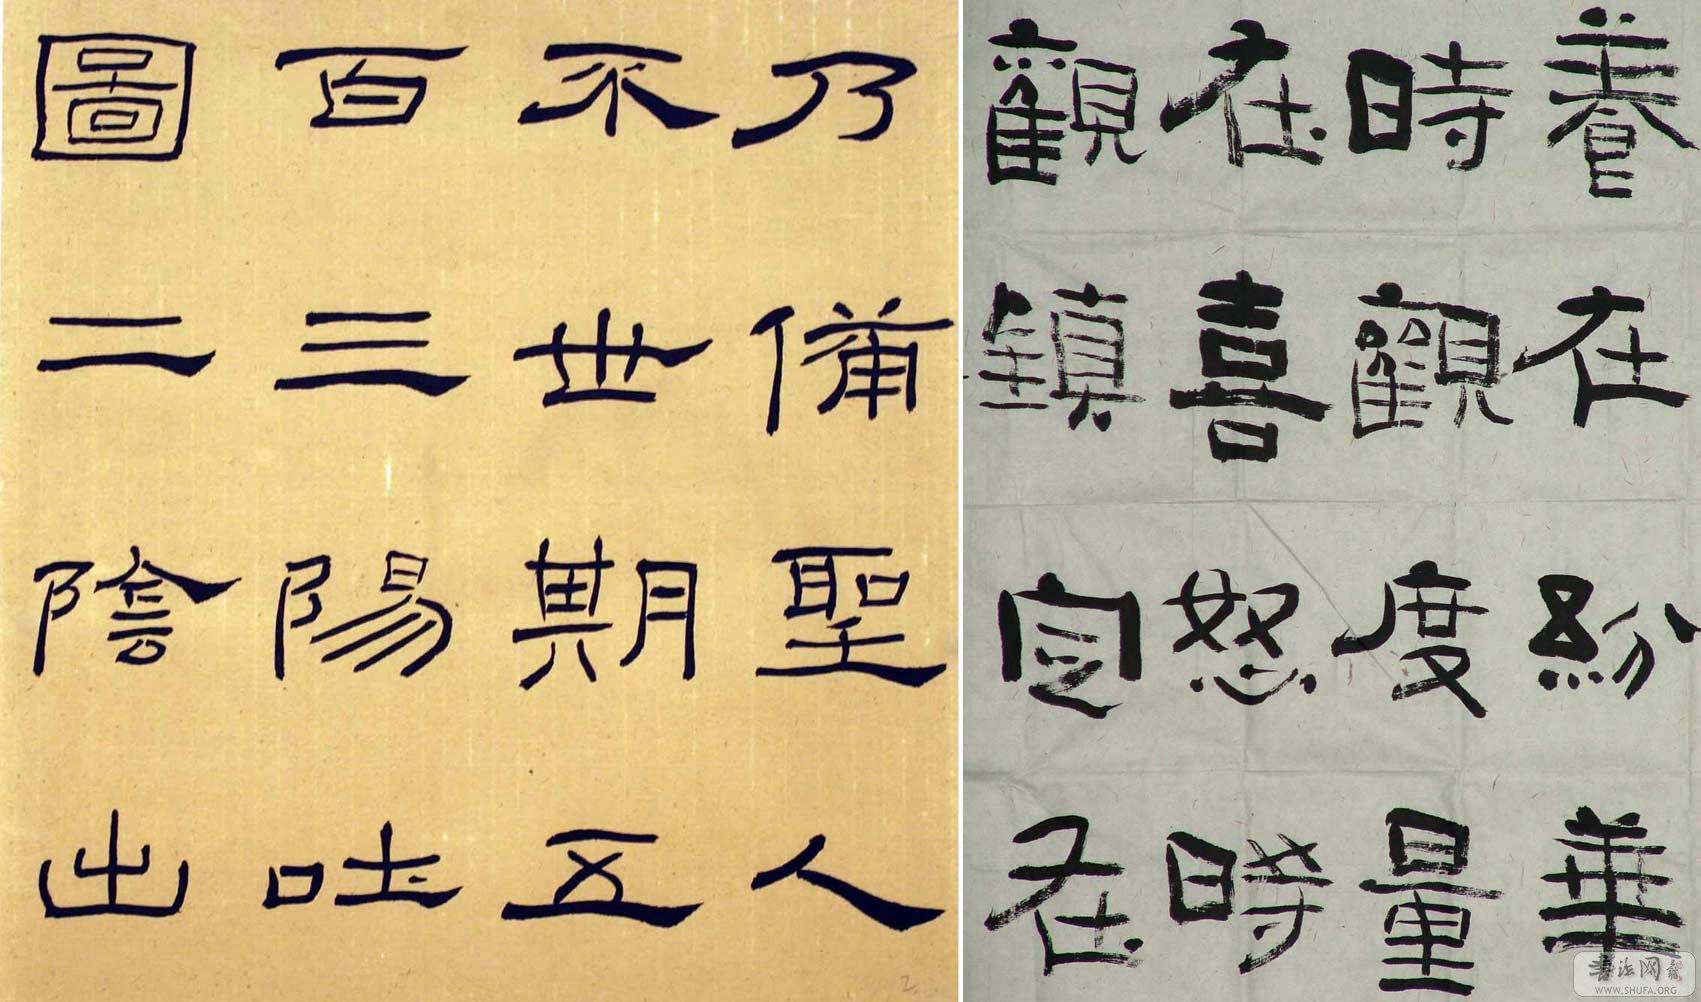 乃備聖人
不世期五
百三陽吐
圖二陰出
2
養在紛華
時觀度量
在喜怒時
觀鎮定在
书法网
WWW.SHUFA.ORG